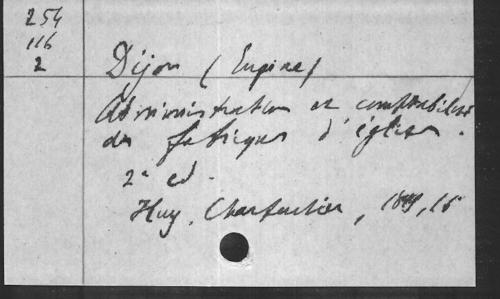 254
116
2
Dijon (Eugène)
Administration et comptabilité
des fabriques d'églises.
2e ed.
Huy, Charpentier, 16